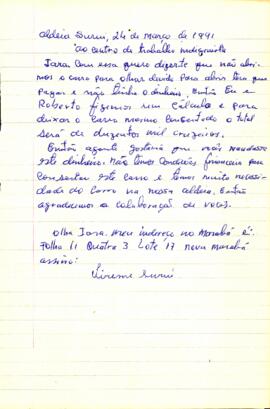 Aldeia Surui, 24 de março de 1991
ao centro de trabalho indigenista
Iara com essa quero dizerte que não abri-
mos o carro para olhar devido Para abrir tem que
pagar e não tinha o dinheiro. Então Eu e
Roberto fizemos um cálculo e para
deixar o carro mesmo consertado o total
será de duzentos mil cruzeiros.
Então agente gostaria que vocês mandasse
este dinheiro. Não temos condições financeira para
consertar este carro e temos muita necessi-
dade do carro na nossa aldeia. Então
agradecemos a colaboração de vocês.
Olha Iara. meu indereço no Marabá é:
Folha 11 Quadra 3 Lote 17 nova marabá
assino:
Surui